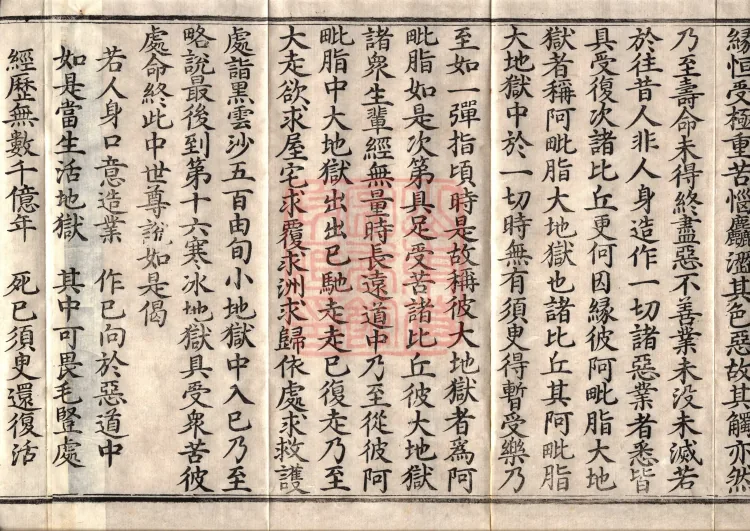 緣恒受極重苦惱麤澀其色惡故其觸亦然
乃至壽命未得終盡惡不善業未没未滅若
於往昔人非人身造作一切諸惡業者悉皆
具受復次諸比丘更何因緣彼阿毗脂大地
獄者稱阿毗脂大地獄也諸比丘其阿毗脂
大地獄中於一切時無有須臾得暫受樂乃
至如一彈指頃時是故稱彼大地獄者爲阿
毗脂如是次第具足受苦諸比丘彼大地獄
諸衆生輩經無量時長遠道中乃至從彼阿
毗脂中大地獄出出已馳走走已復走乃至
大走欲求屋宅求覆求洲求歸依處求救護
處詣黑雲沙五百由旬小地獄中入已乃至
略說最後到第十六寒冰地獄具受衆苦彼
處命終此中世尊說如是偈
若人身口意造業 作已向於惡道中
如是當生活地獄 其中可畏毛豎處
經歷無數千億年 死已須臾還復活